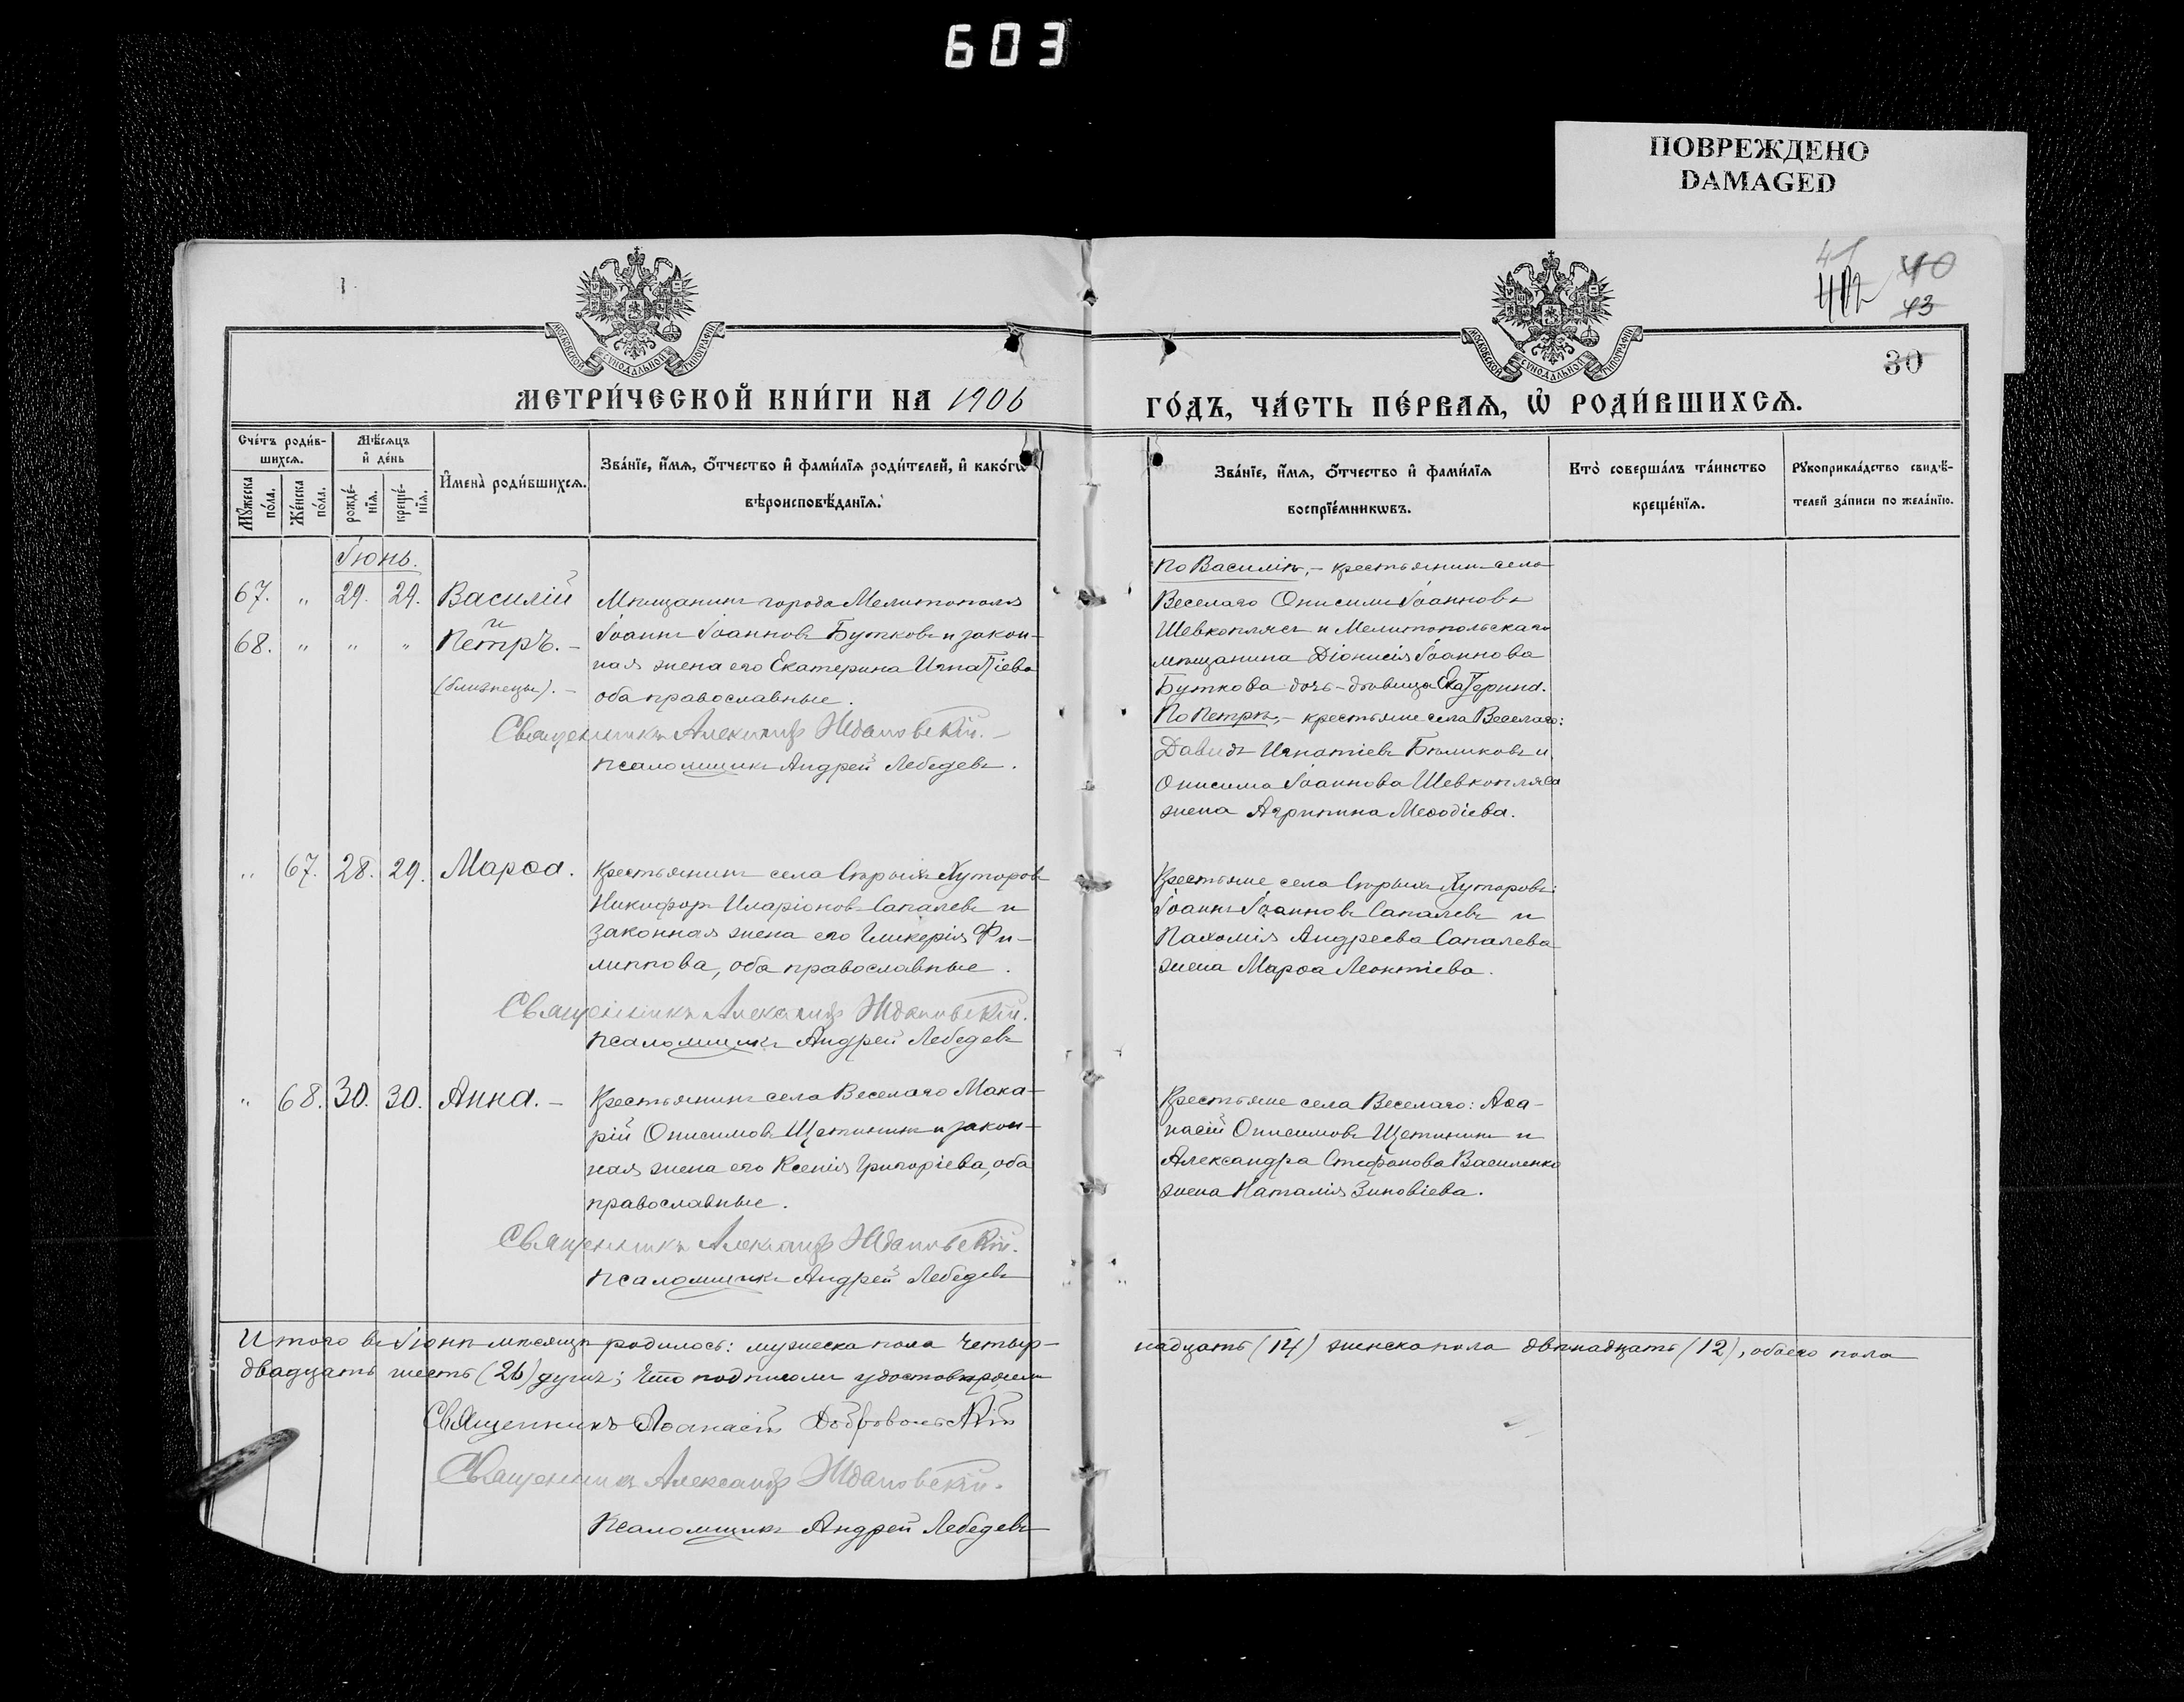 603
ПОВРЕЖДЕНО
DAMAGED
41 40
402 43
30
МОСКОВСКОЙ СѴНОДАЛЬНОЙ ТИПОГРАФІИ
МОСКОВСКОЙ СѴНОДАЛЬНОЙ ТИПОГРАФІИ
МЕТРИ́ЧЕСКОЙ КНИ́ГИ НА 1906
ГО́ДЪ, ЧА́СТЬ ПЕ́РВАѦ, Ѡ҆ РОДИ́ВШИХСѦ.
Сче́тъ роди́в-
шихсѧ.
Мꙋ́жеска по́ла.
Же́нска по́ла.
Мѣ́сѧцъ
и҆ де́нь
рожде́-
нїѧ.
креще́-
нїѧ.
И҆мена̀ роди́вшихсѧ.
Зва́нїе, и҆́мѧ, ѻ҆́тчество и҆ фами́лїѧ роди́телей, и҆ како́гѡ
вѣроисповѣ́данїѧ.
Зва́нїе, и҆́мѧ, ѻ҆́тчество и҆ фами́лїѧ
воспрїе́мникѡвъ.
Кто̀ соверша́лъ та́инство
креще́нїѧ.
Рꙋкоприкла́дство свидѣ́-
телей за́писи по жела́нїю.
Іюнь.
67. " 29. 29. Василій
и
68. " " " Петръ. –
(близнецы). –
Мѣщанинъ города Мелитополя
Іоаннъ Іоанновъ Бутковъ и закон-
ная жена его Екатерина Игнатіева
оба православные.
Священникъ Александръ Ждановскій. –
Псаломщикъ Андрей Лебедевъ.
По Василіѣ, – крестьянинъ села
Веселаго Онисимъ Іоанновъ
Шевкоплясъ и Мелитопольскаго
мѣщанина Діонисія Іоаннова
Буткова дочь – дѣвица Екатерина.
По Петрѣ, – крестьяне села Веселаго:
Давидъ Игнатіевъ Бѣликовъ и
Онисима Іоаннова Шевкопляса
жена Агрипина Меѳодіева.
" 67. 28. 29. Марѳа.
Крестьянинъ села Сѣрыхъ Хуторовъ
Никифоръ Иларіоновъ Сапалевъ и
законная жена его Гликерія Фи-
липпова, оба православные.
Священникъ Александръ Ждановскій.
Псаломщикъ Андрей Лебедевъ
Крестьяне села Сѣрыхъ Хуторовъ:
Іоаннъ Іоанновъ Сапалевъ и
Пахомія Андреева Сапалева
жена Марѳа Леонтіева.
" 68. 30. 30. Анна. –
Крестьянинъ села Веселаго Мака-
рій Онисимовъ Щетининъ и закон-
ная жена его Ксенія Григоріева, оба
православные.
Священникъ Александръ Ждановскій.
Псаломщикъ Андрей Лебедевъ
Крестьяне села Веселаго: Аѳа-
насій Онисимовъ Щетининъ и
Александра Стефанова Василенко
жена Наталія Зиновіева.
Итого въ Іюнѣ мѣсяцѣ родилось: мужеска пола четыр-
надцать (14) женска пола двѣнадцать (12), обоего пола
двадцать шесть (26) душъ; Что подписомъ удостовѣряемъ
Священникъ Аѳанасій Добровольскій
Священникъ Александръ Ждановскій.
Псаломщикъ Андрей Лебедевъ